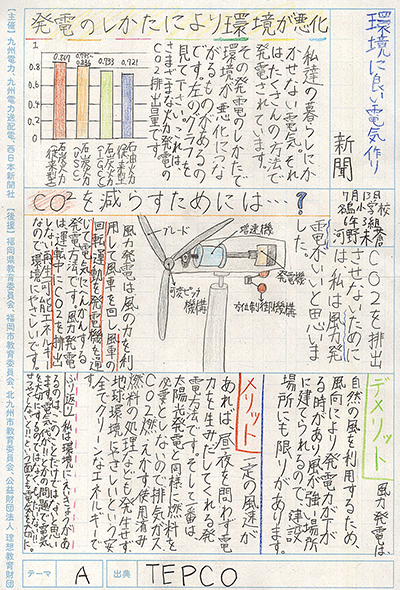 環境に良い電気作り
新聞
7月13日
6年3組
発電のしかたにより環境が悪化
私達の暮らしにか
かせない電気、それ
はたくさんの方法で
発電されています。
その発電のしかたで
環境が悪化につな
がるものがあるの
です。左のグラフを
見て下さい。これは、
さまざまな火力発電の
CO2排出量です。
1
0.8
0.6
0.4
0.2
0
0.867
0.795~
0.836
0.733
0.721
石炭火力
従来型
石炭火力
USC
石炭火力
IGCC
石油火力
従来型
CO²を減らすためには…?
CO2を排出
させないために
は、私は風力発
電がいいと思いま
した。
ブレード
増速機
発電機
可変ピッチ
機構
方位制御機構
風力発電は風の力を利
用して風車を回し、風車の
回転運動を発電機を通
じて電気にへんかんする
発電方法です。風力発電
は運転中にCO2を排出
しない再生可能エネルギー
なので環境にやさしいです。
デメリット
風力発電は
自然の風を利用するため、
風向により発電力が下が
る時があり風が強い場所
に建てられるので、建設
場所にも限りがあります。
メリット
一定の風速が
あれば、昼夜を問わず電
力を生みだしてくれる発
電方法です。そして一番は、
太陽光発電と同様に燃料を
必要としないので排気ガス、
CO2、燃えかす、使用済み
燃料の処理なども発生せず
地球環境にやさしいという安
全でクリーンなエネルギーで
す。
ふり返り
私は環境にえいきょうがあ
テーマ
A
出典
TEPCO
【主催】九州電力、九州電力送配電、西日本新聞社
【後援】福岡県教育委員会、福岡市教育委員会、北九州市教育委員会、公益財団法人 理想教育財団